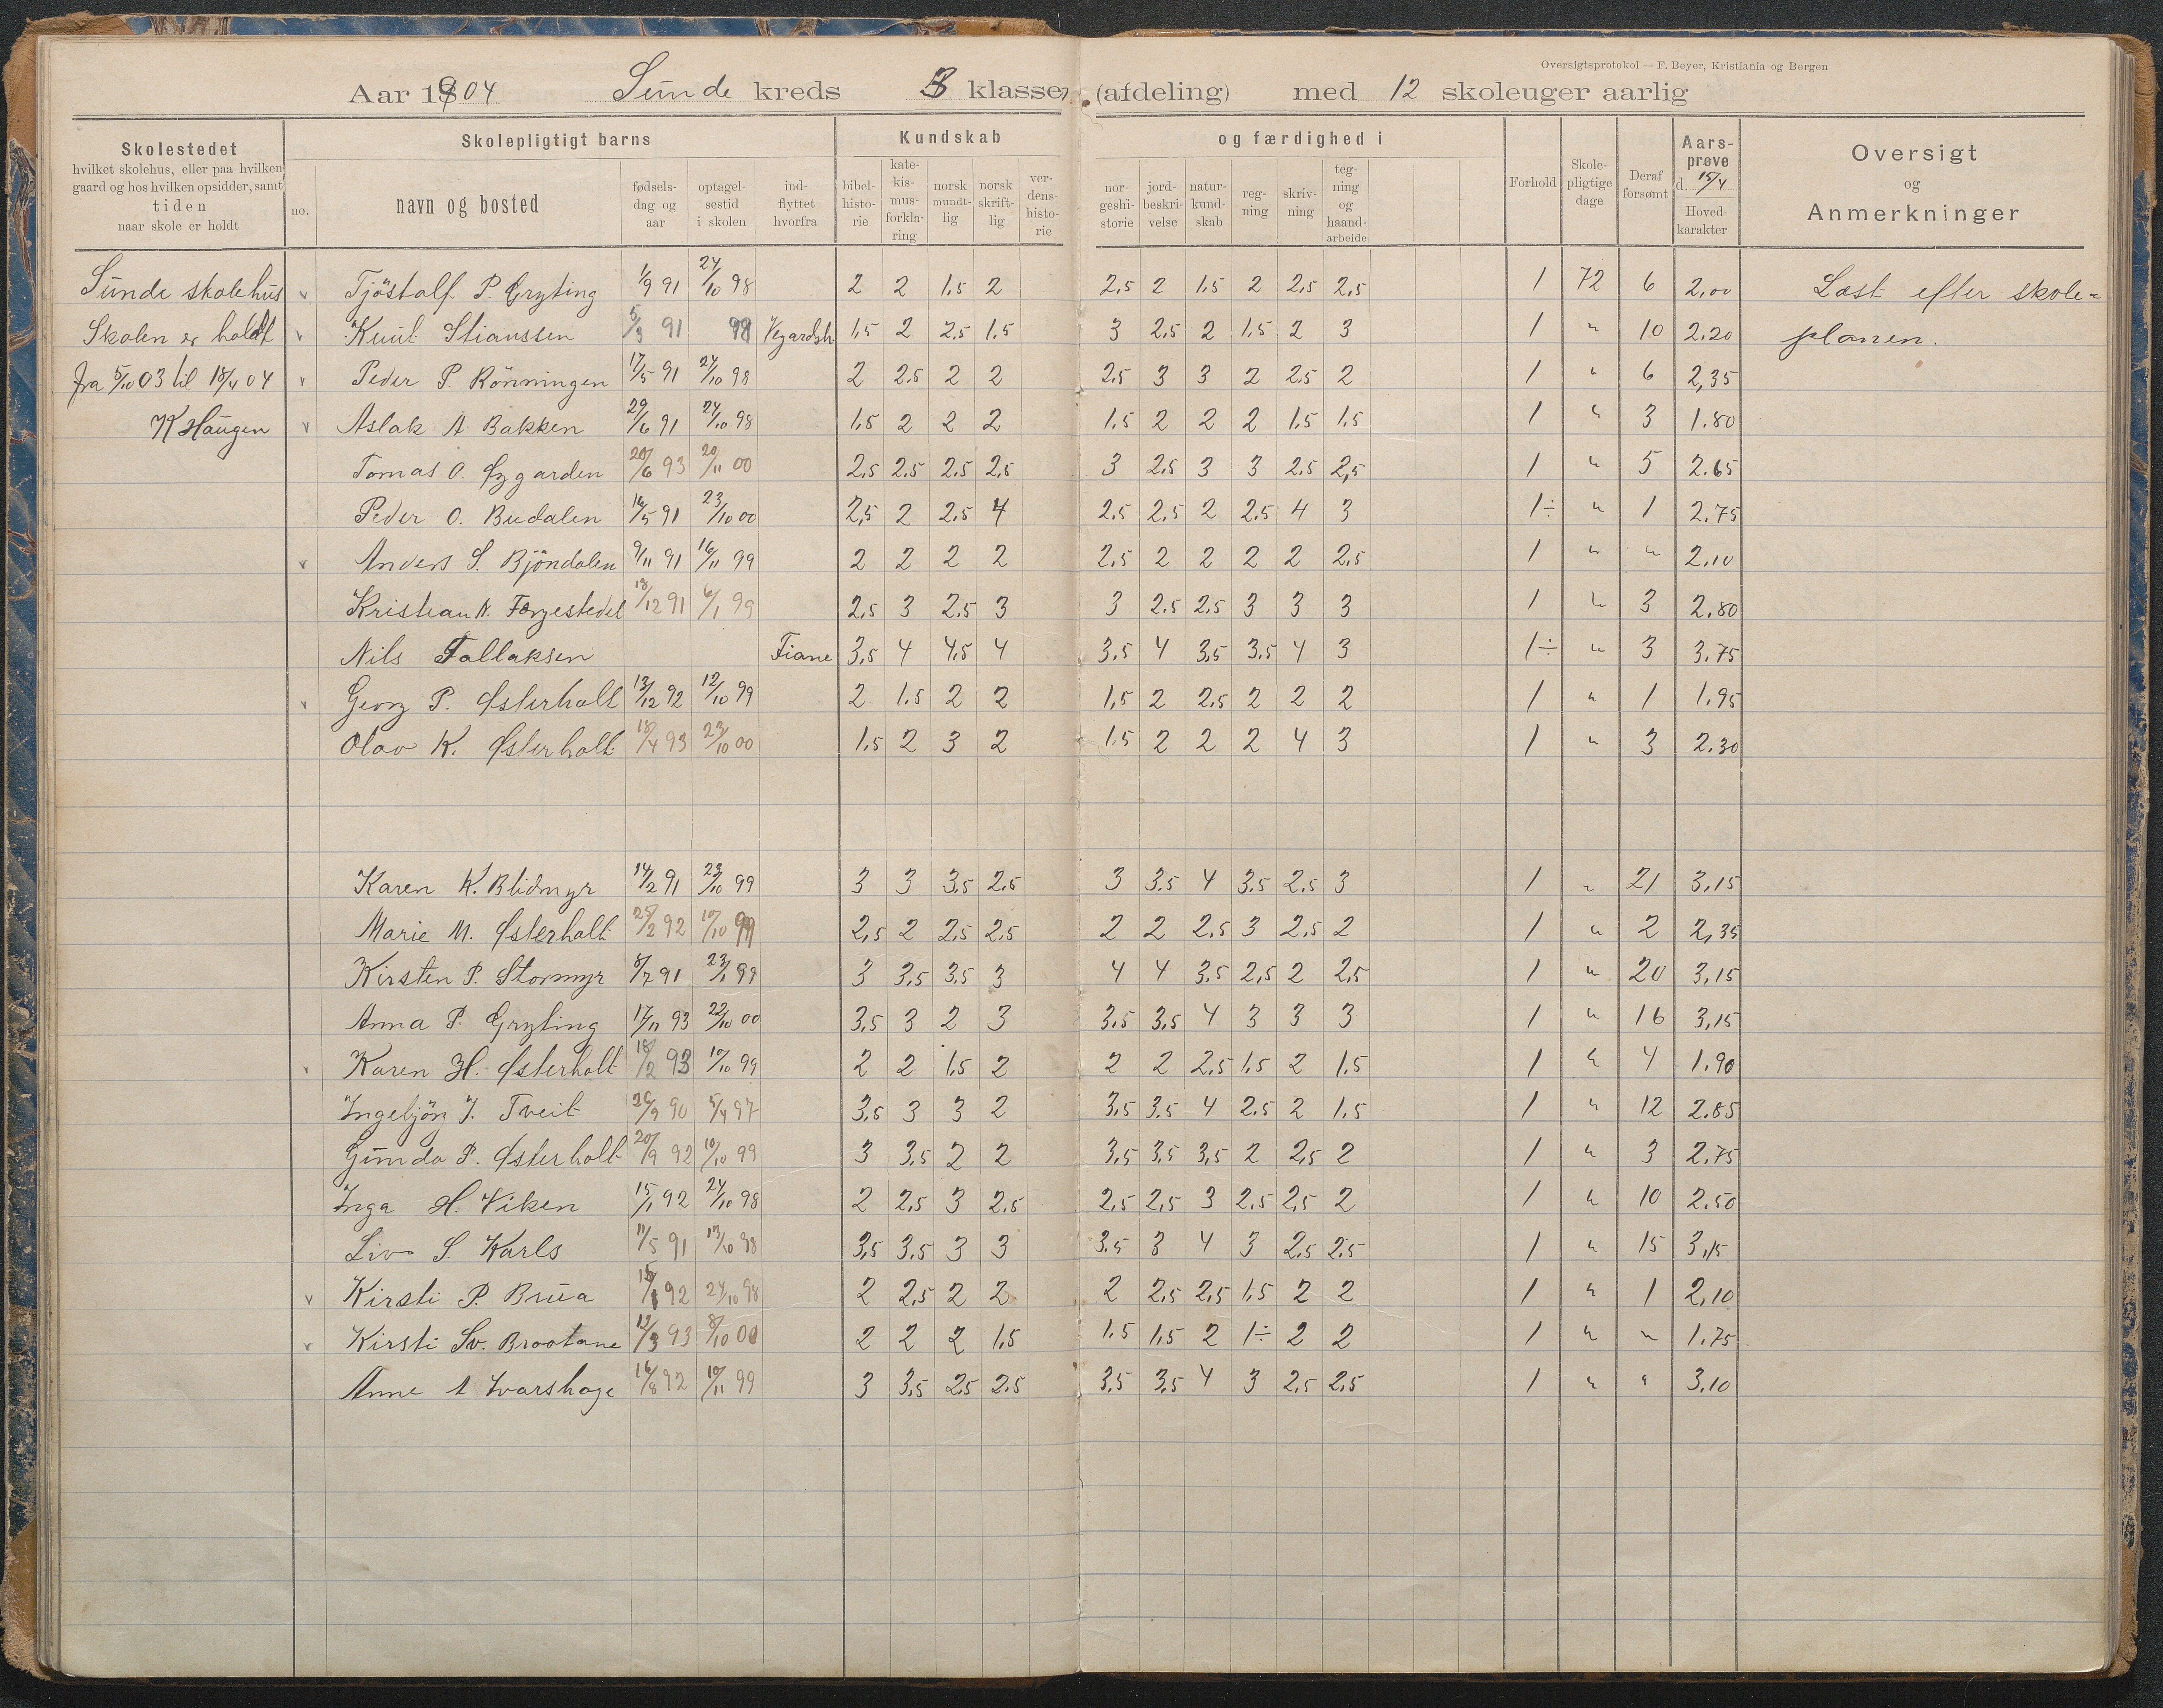 Oversigtsprotokol — F. Beyer, Kristiania og Bergen
Aar 1904 Sunde kreds 3 klasse, (afdeling) med 12 skoleuger aarlig
Skolestedet
hvilket skolehus, eller paa hvilken
gaard og hos hvilken opsidder, samt
tiden
naar skole er holdt
Skolepligtigt barns
no.
navn og bosted
fødsels-
dag og
aar
optagel-
sestid
i skolen
ind-
flyttet
hvorfra
Kundskab
bibel-
histo-
rie
kate-
kis-
mus-
forkla-
ring
norsk
mundt-
lig
norsk
skrift-
lig
ver-
dens-
histo-
rie
og færdighed i
nor-
geshi-
storie
jord-
beskri-
velse
natur-
kund-
skab
reg-
ning
skriv-
ning
teg-
ning
og
haand-
arbeide
Forhold
Skole-
pligtige
dage
Deraf
forsømt
Aars-
prøve
d. 15/4
Hoved-
karakter
Oversigt
og
Anmerkninger
Sunde skolehus v Tjöstolf P. Gryting 1/9 91 24/10 98 2 2 1.5 2 2.5 2 1.5 2 2.5 2.5 1 72 6 2,00 Læst efter skole-
Skolen er holdt v Knut Stianssen 5/3 91 98 Vegardsh. 1.5 2 2.5 1.5 3 2.5 2 1.5 2 3 1 " 10 2.20 planen.
fra 5/10 03 til 18/4 04 v Peder P. Rönningen 17/5 91 24/10 98 2 2.5 2 2 2.5 3 3 2 2.5 2 1 " 6 2,35
K Haugen v Aslak A Bakken 29/6 91 24/10 98 1.5 2 2 2 1.5 2 2 2 1.5 1.5 1 " 3 1.80
Tomas O. Øygarden 20/6 93 20/11 00 2.5 2.5 2.5 2.5 3 2.5 3 3 2.5 2,5 1 " 5 2.65
Peder O. Budalen 16/5 91 23/10 00 2,5 2 2.5 4 2.5 2.5 2 2.5 4 3 1÷ " 1 2.75
v Anders S. Bjöndalen 9/11 91 16/11 99 2 2 2 2 2.5 2 2 2 2 2.5 1 " " 2.10
Kristian K. Færgestedet 18/12 91 6/1 99 2.5 3 2.5 3 3 2.5 2.5 3 3 3 1 " 3 2.80
Nils Tallaksen Fiane 3,5 4 4.5 4 3.5 4 3.5 3.5 4 3 1÷ " 3 3.75
v Georg P. Østerholt 13/12 92 12/10 99 2 1.5 2 2 1,5 2 2.5 2 2 2 1 " 1 1.95
Olav K. Østerholt 18/4 93 23/10 00 1.5 2 3 2 1.5 2 2 2 4 3 1 " 3 2.30
Karen K. Blidmyr 14/2 91 23/10 99 3 3 3.5 2.5 3 3.5 4 3.5 2.5 3 1 " 21 3.15
Marie M. Østerholt 25/2 92 17/10 99 2,5 2 2.5 2.5 2 2 2.5 3 2.5 2 1 " 2 2,35
Kirsten P. Stormyr 8/7 91 23/1 99 3 3.5 3.5 3 4 4 3.5 2,5 2 2.5 1 " 20 3,15
Anna P. Gryting 17/11 93 22/10 00 3.5 3 2 3 3.5 3.5 4 3 3 3 1 " 16 3,15
Karen H. Østerholt 18/2 93 17/10 99 2 2 1.5 2 2 2 2.5 1.5 2 1.5 1 " 4 1.90
Ingebjörg J. Tveit 26/9 90 5/4 97 3.5 3 3 2 3.5 3.5 4 2.5 2 1.5 1 " 12 2.85
Gunda P. Østerholt 20/9 92 10/10 99 3 3.5 2 2 3.5 3.5 3,5 2 2,5 2 1 " 3 2.75
Inga H. Viken 15/1 92 24/10 98 2 2.5 3 2.5 2.5 2,5 3 2.5 2,5 2 1 " 10 2.50
Liv S. Karls 11/5 91 17/10 98 3,5 3.5 3 3 3.5 3 4 3 2.5 2.5 1 " 15 3,15
v Kirsti P. Brua 92 24/10 98 2 2.5 2 2 2 2.5 2.5 1.5 2 2 1 " 1 2,10
v Kirsti Sv. Brootane 12/3 93 8/10 00 2 2 2 1.5 1.5 1.5 2 1÷ 2 2 1 " " 1.75
Anne A Ivarshage 16/8 92 10/11 99 3 3,5 2.5 2.5 3.5 3.5 4 3 2.5 2.5 1 " " 3.10